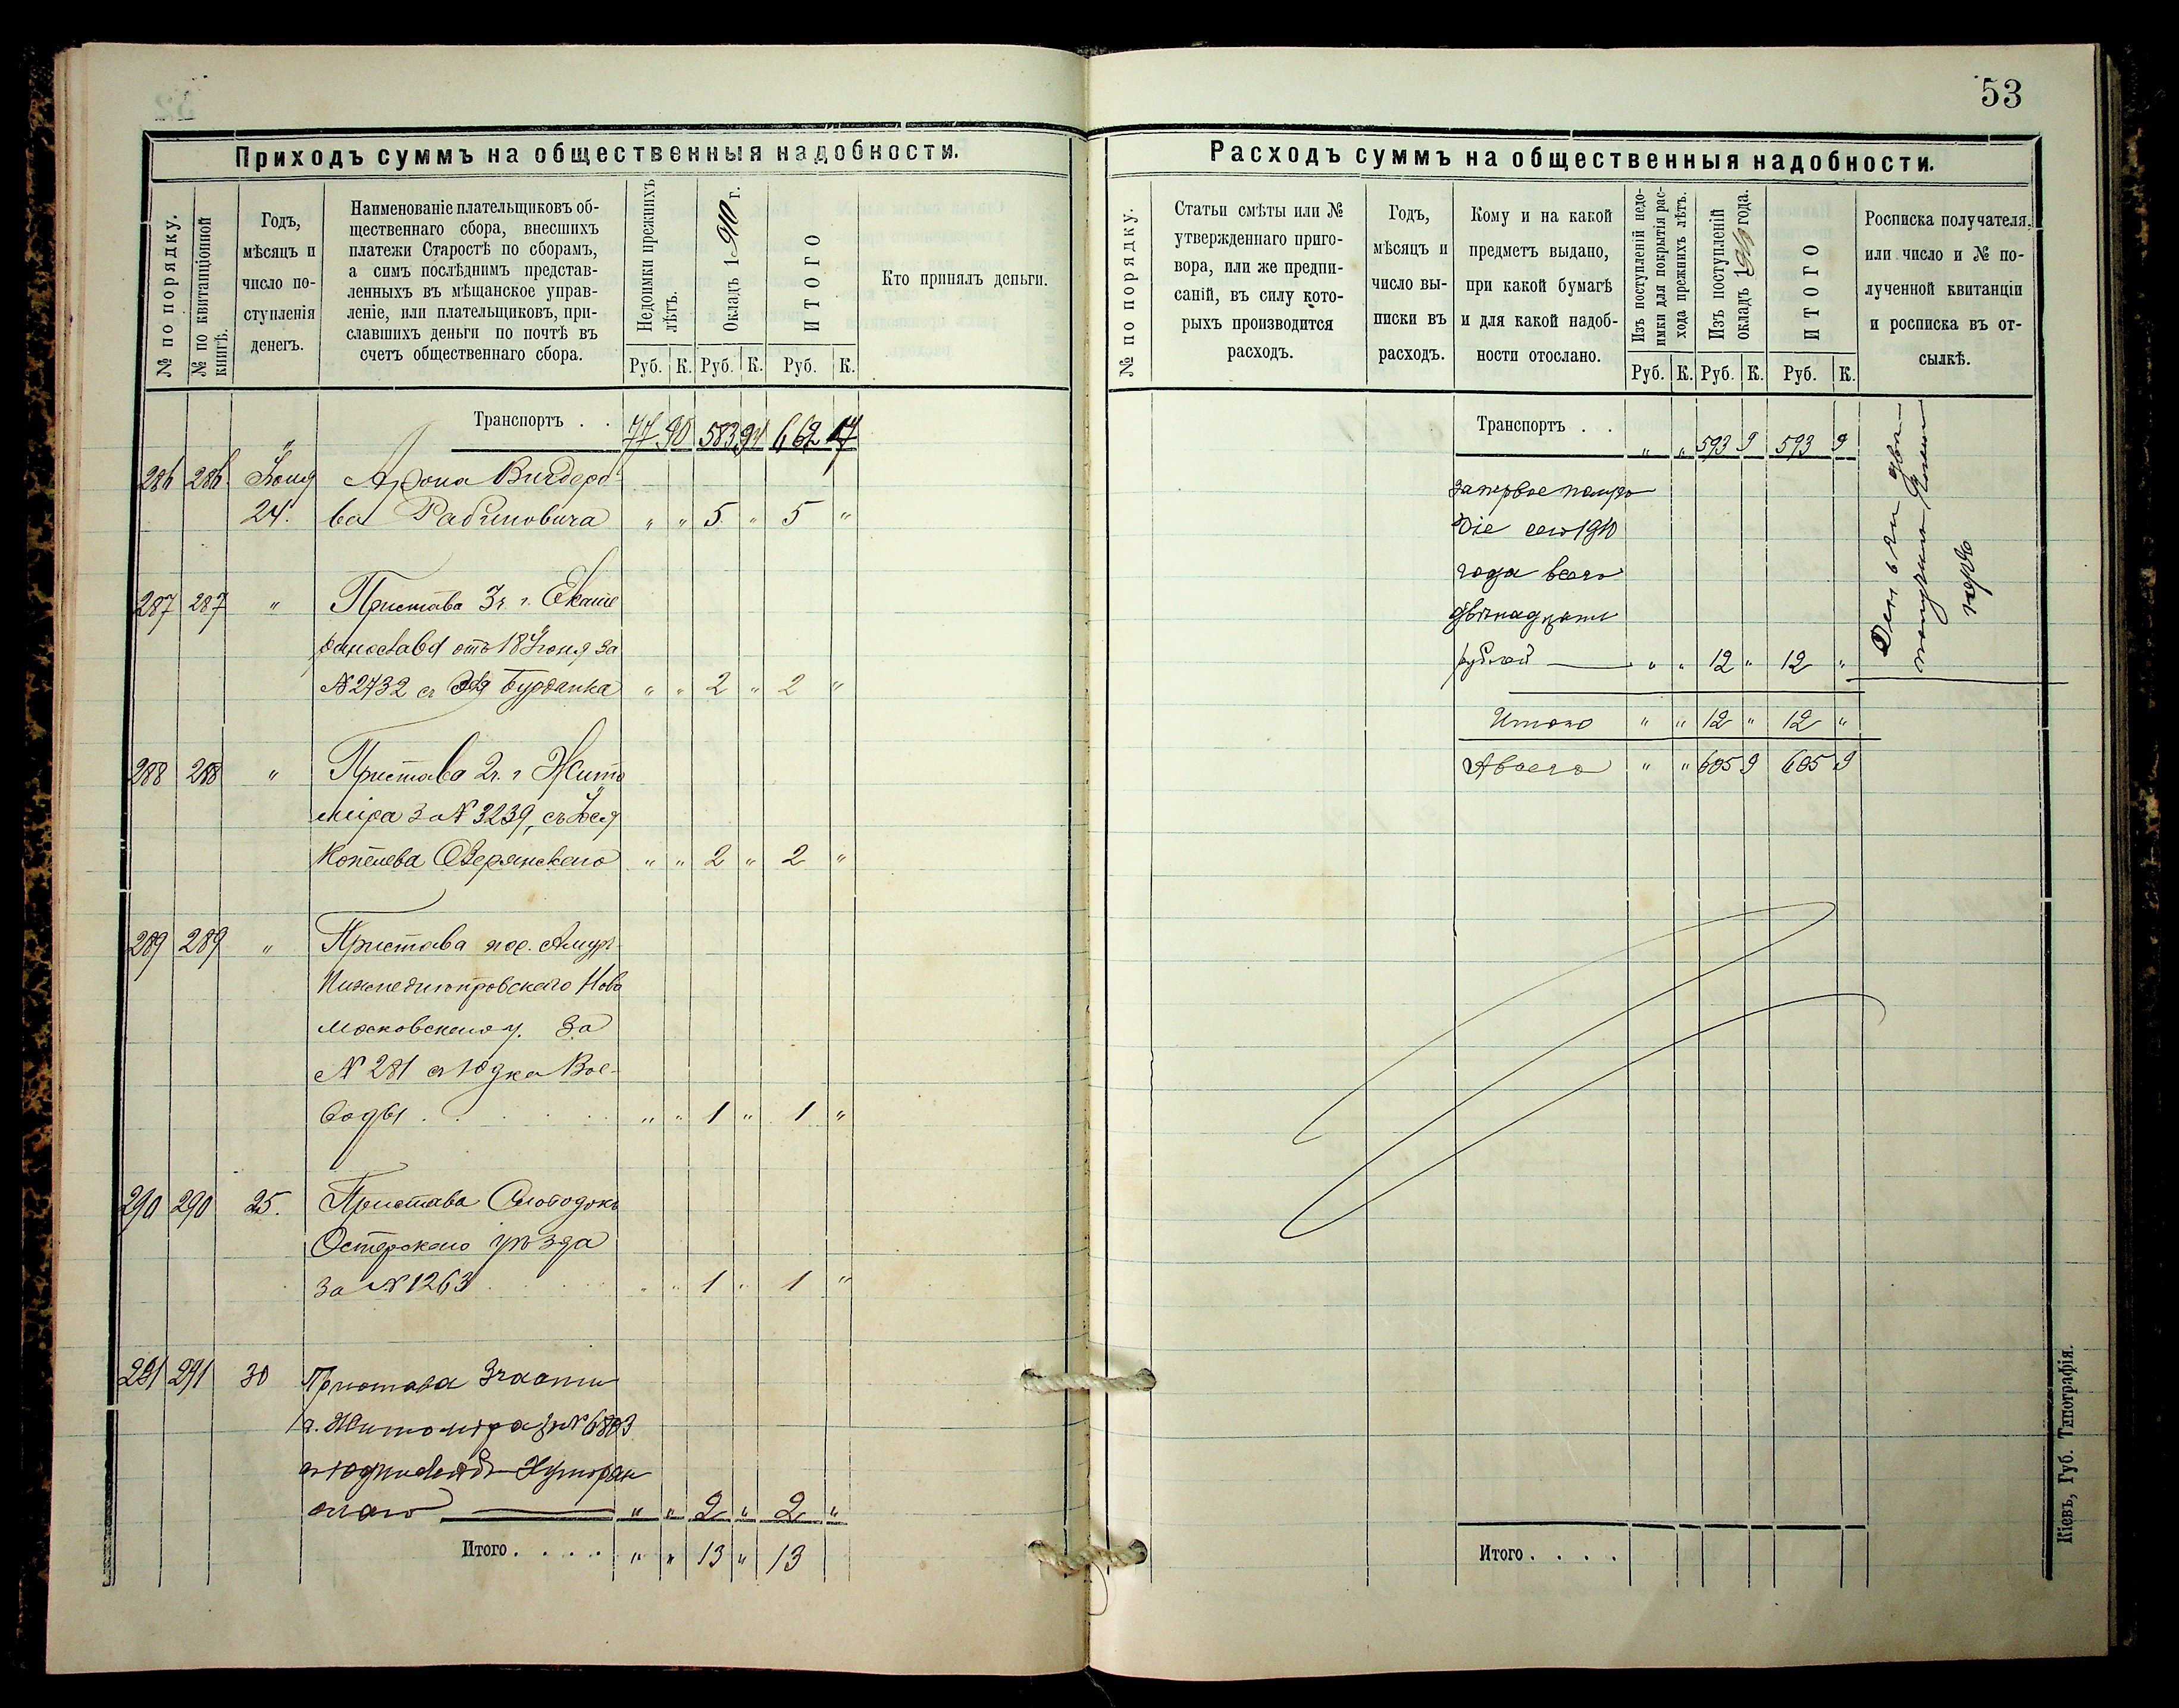 53
Приходъ суммъ на общественныя надобности.
№ по порядку.
№ по квитанціонной
книгѣ.
Годъ,
мѣсяцъ и
число по-
ступленія
денегъ.
Наименованіе плательщиковъ об-
щественнаго сбора, внесшихъ
платежи Старостѣ по сборамъ,
а симъ послѣднимъ представ-
ленныхъ въ мѣщанское управ-
леніе, или плательщиковъ, при-
славшихъ деньги по почтѣ въ
счетъ общественнаго сбора.
Недоимки прежнихъ
лѣтъ.
Окладъ 1910 г.
ИТОГО
Руб. К. Руб. К. Руб. К.
Кто принялъ деньги.
Транспортъ . . 77 90 583 94 662 17
286 286 Іюня Арона Вигдоро-
24. ва Рабиновича " " 5 " 5 "
287 287 " Пристава 3 ч. г. Екате
ринослава отъ 18 Іюня за
№ 2732 съ Бурдаика " " 2 " 2 "
288 288 " Пристава 2 ч. г. Жито
міра за № 3239, съ
Копелева Озерянскаго " " 2 " 2 "
289 289 " Пристава пос. Амуръ-
Нижнеднѣпровскаго Ново
московскаго у. за
№ 281 съ Юдка Вое-
воды . . . . . " " 1 " 1 "
290 290 25. Пристава Слободокъ
Остерскаго уѣзда
за № 1263 . . . " " 1 " 1 "
291 291 30 Пристава 3 части
г. Житоміра за № 6803
скаго " " 2 " 2 "
Итого . . . . " " 13 " 13
Расходъ суммъ на общественныя надобности.
№ по порядку.
Статьи смѣты или №
утвержденнаго приго-
вора, или же предпи-
саній, въ силу кото-
рыхъ производится
расходъ.
Годъ,
мѣсяцъ и
число вы-
писки въ
расходъ.
Кому и на какой
предметъ выдано,
при какой бумагѣ
и для какой надоб-
ности отослано.
Изъ поступленій недо-
имки для покрытія рас-
хода прежнихъ лѣтъ.
Изъ поступленій
окладъ 1910 года.
ИТОГО
Руб. К. Руб. К. Руб. К.
Росписка получателя,
или число и № по-
лученной квитанціи
и росписка въ от-
сылкѣ.
Транспортъ . . " " 593 9 593 9
за первое полуго
діе сего 1910
года всего
двѣнадцать
рублей " " 12 " 12 "
Итого " " 12 " 12 "
А всего " " 605 9 605 9
Итого . . . .
Кіевъ, Губ. Типографія.